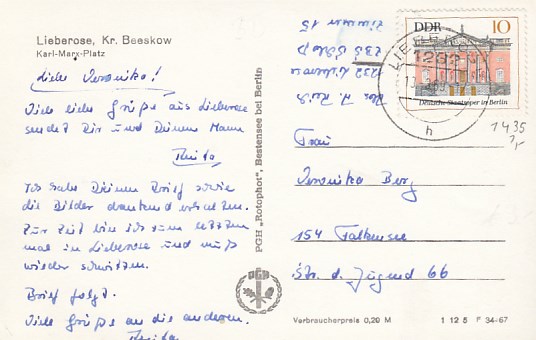 Lieberose, Kr. Beeskow
Karl-Marx-Platz
Liebe Veronika!
Viele liebe Grüße aus Lieberose
sendet Dir und Deinem Mann
Ich habe Deinen Brief sowie
die Bilder dankend erhalten.
Zur Zeit bin ich zum letzten
mal in Lieberose und muß
wieder schwitzen.
Brief folgt.
Viele Grüße an die anderen.
PGH „Rotophot", Bestensee bei Berlin
PGH
1232 Lieberose
Zimmer 15
DDR 10
Deutsche Staatsoper in Berlin
h
1435
Frau
Veronika Berg
154 Falkensee
Str. d. Jugend 66
Verbraucherpreis 0,20 M
1 12 5 F 34-67